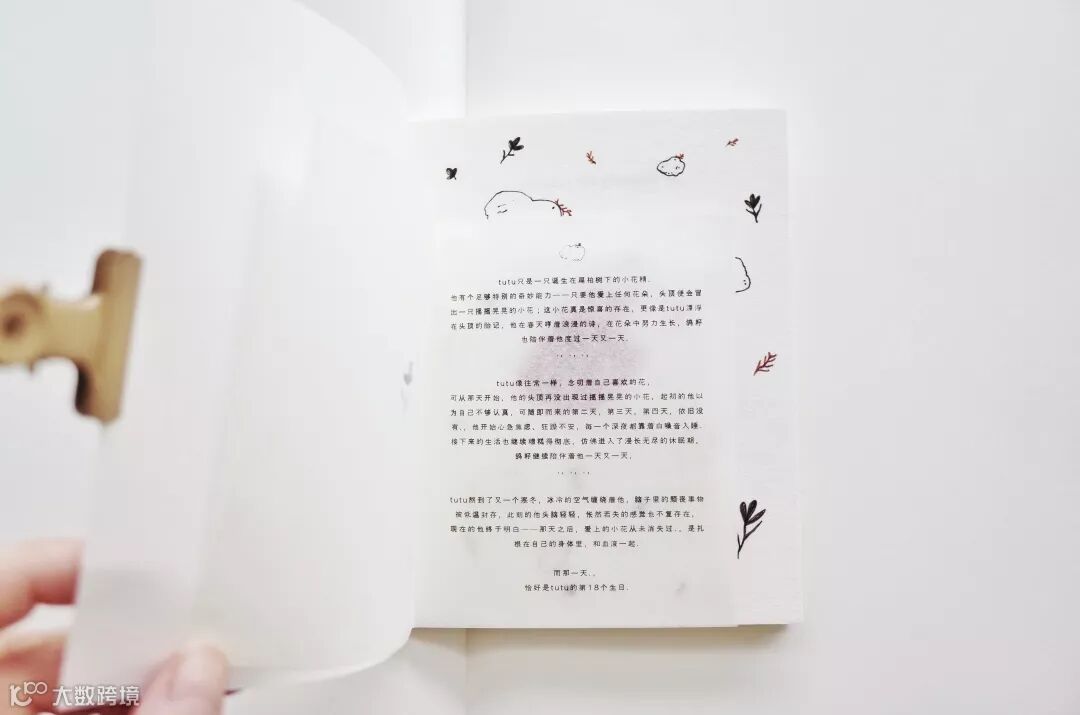 tutu只是一只诞生在扁柏树下的小花精.
他有个足够特别的奇妙能力——只要他爱上任何花朵，头顶便会冒
出一只摇摇晃晃的小花；这小花真是惊喜的存在，更像是tutu漂浮
在头顶的胎记，他在春天哼着浪漫的诗，在花朵中努力生长，鸽籽
也陪伴着他度过一天又一天.
tutu像往常一样，念叨着自己喜欢的花，
可从那天开始，他的头顶再没出现过摇摇晃晃的小花，起初的他以
为自己不够认真，可随即而来的第二天，第三天，第四天，依旧没
有.，他开始心急焦虑、狂躁不安，每一个深夜都靠着白噪音入睡.
接下来的生活也继续糟糕得彻底，仿佛进入了漫长无尽的休眠期，
鸽籽继续陪伴着他一天又一天，
tutu熬到了又一个寒冬，冰冷的空气缠绕着他，脑子里的颓丧事物
被低温封存，此刻的他头脑轻轻，怅然若失的感觉也不复存在，
现在的他终于明白——那天之后，爱上的小花从未消失过.，是扎
根在自己的身体里，和血液一起.
而那一天.，
恰好是tutu的第18个生日.
大数跨境